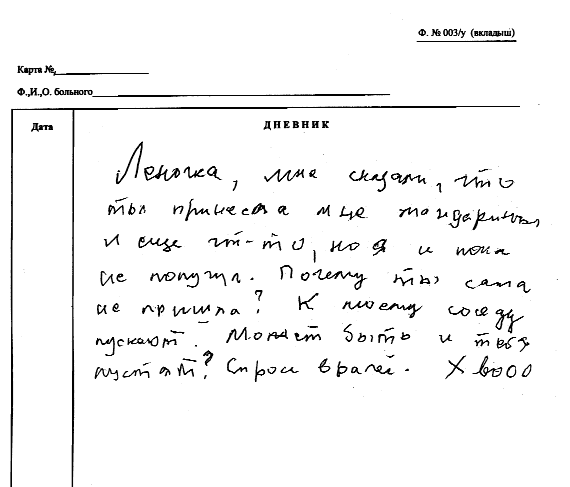 Ф. № 003/у (вкладыш)
Карта №
Ф.,И.,О. больного
Дата
ДНЕВНИК
Леночка, мне сказали, что
ты принесла мне мандарины
и еще что-то, но я и пока
не получил. Почему ты сама
не пришла? К моему соседу
пускают. Может быть и тебя
пустят? Спроси врачей.